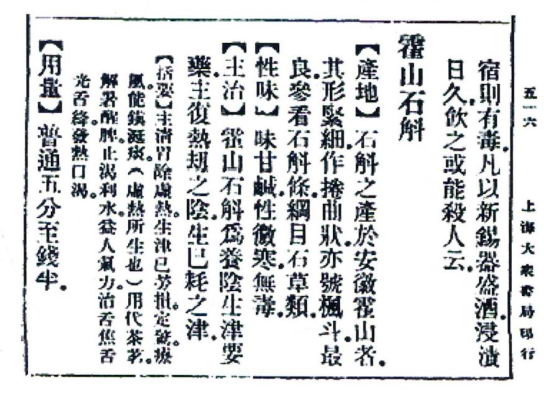 五一六
上海大衆書局印行
宿則有毒。凡以新錫器盛酒。浸漬
日久。飲之或能殺人云。
霍山石斛
【產地】石斛之產於安徽霍山者。
其形緊細。作捲曲狀。亦號楓斗。最
良。參看石斛條。綱目石草類。
【性味】味甘鹹。性微寒。無毒。
【主治】霍山石斛。爲養陰生津要
藥。主復熱刼之陰。生已耗之津。
【括要】主淸胃除虛熱。生津已勞損。定驚療
風。能鎭涎痰。(虛熱所生也)用代茶茗。
解暑醒脾。止渴利水。益人氣力。治舌焦舌
光舌絳。發熱口渴。
【用量】普通五分至錢半。